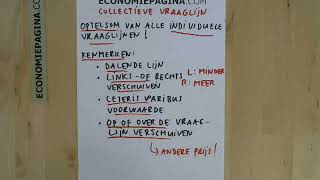 ECONOMIEPAGINA.COM
ECONOMIEPAGINA.COM
COLLECTIEVE VRAAGLIJN
OPTELSOM VAN ALLE INDIVIDUELE
VRAAGLIJNEN!
KENMERKEN:
• DALENDE LIJN
• LINKS- OF RECHTS
VERSCHUIVEN
L: MINDER
R: MEER
• CETERIS PARIBUS
VOORWAARDE
• OP OF OVER DE VRAAG-
LIJN VERSCHUIVEN
↳ ANDERE PRIJS!